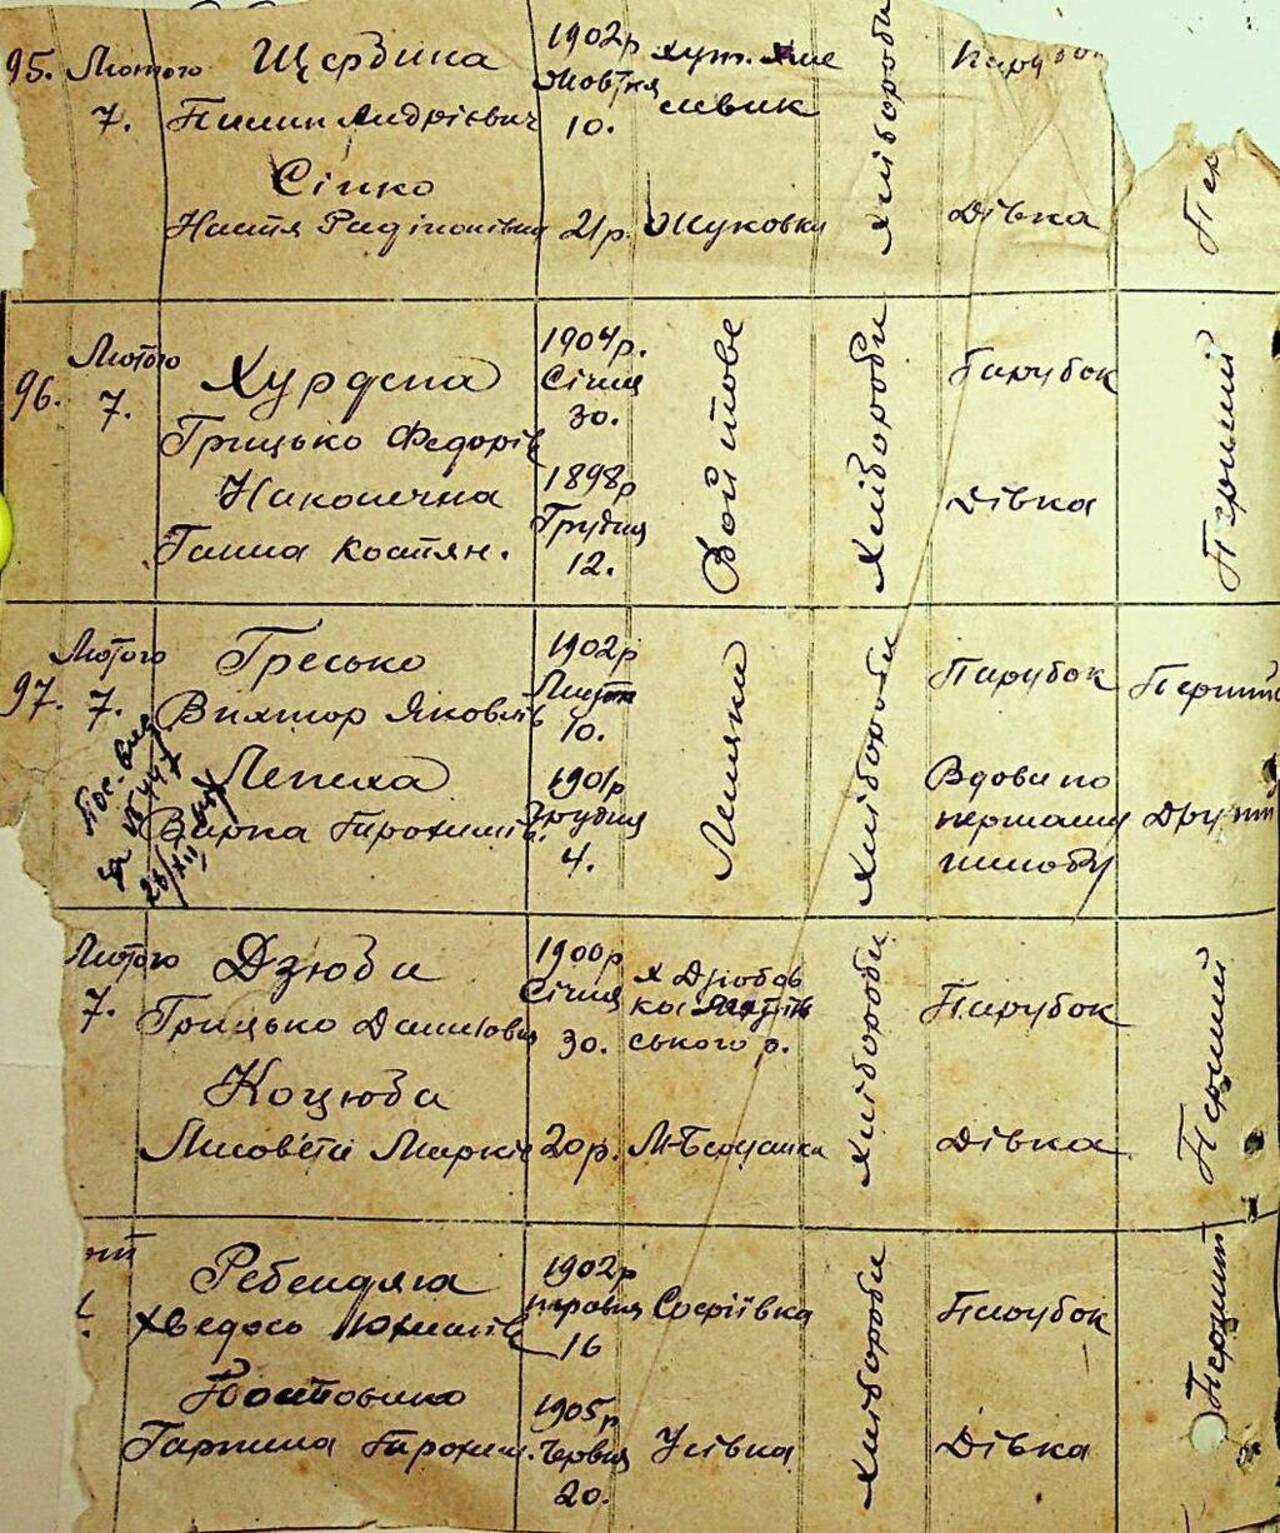 95. Лютого 7.
Щербина
Пилип Андрієвич
1902р
Жовтня
10.
хут.
Хлібороби
Сіпко
Настя
21р.
Жуковка
Дівка
96. Лютого 7.
Хурдепа
Грицько Федорів
1904р.
Січня
30.
Войтове
Хлібороби
Парубок
Перший
Наконечна
Ганна Костян.
1898р
Грудня
12.
Дівка
97. Лютого 7.
Гресько
Виктор Яковлів
1902р
10.
Лемяки
Хлібороби
Парубок
Перший
Лепеха
Варка Трохимів.
1901р
Грудня
4.
Вдова по
першому
шлюбу
Другий
26/XII
Лютого 7.
Дзюба
Грицько Данилович
1900р
Січня
30.
х Дзюбов
ського р.
Хлібороби
Парубок
Перший
Коцюба
Лисовета Марків
20р.
М-Березанка
Дівка
Ребендяга
Хведось Юхимів
1902р
16
Софіївка
Хлібороби
Парубок
Перший
Гарпина Трохим.
1905р
Червня
20.
Усівка
Дівка